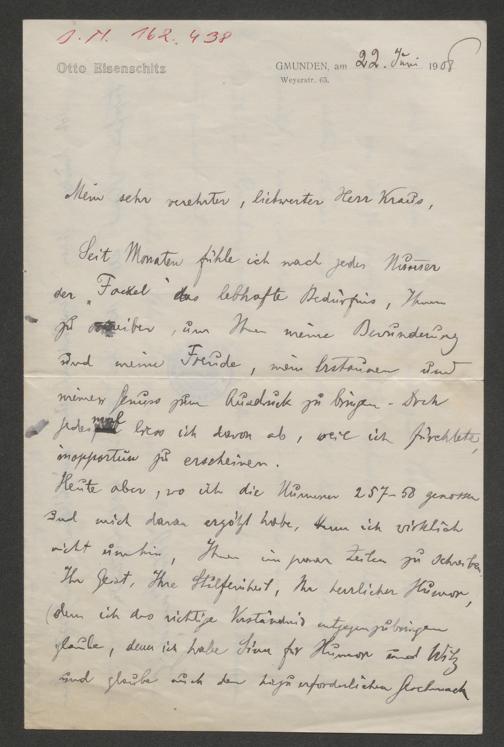 J. N. 162.438
Otto Eisenschitz
GMUNDEN, am 22. Juni 1908
Weyerstr. 63.
Mein sehr verehrter, liebwerter Herr Kraus,
Seit Monaten fühle ich nach jeder Nummer
der „Fackel" das lebhafte Bedürfnis, Ihnen
zu schreiben, um Ihnen meine Bewunderung
und meine Freude, mein Erstaunen und
meinen Genuss zum Ausdruck zu bringen. Doch
jedesmal liess ich davon ab, weil ich fürchtete,
inopportun zu erscheinen.
Heute aber, wo ich die Nummer 257-58 genossen
und mich daran ergötzt habe, kann ich wirklich
nicht umhin, Ihnen ein paar Zeilen zu schreiben.
Ihr Geist, Ihre Stilfeinheit, Ihr herrlicher Humor,
(dem ich das richtige Verständnis entgegenzubringen
glaube, denn ich habe Sinn für Humor und Witz
und glaube auch den hiezu erforderlichen Geschmack